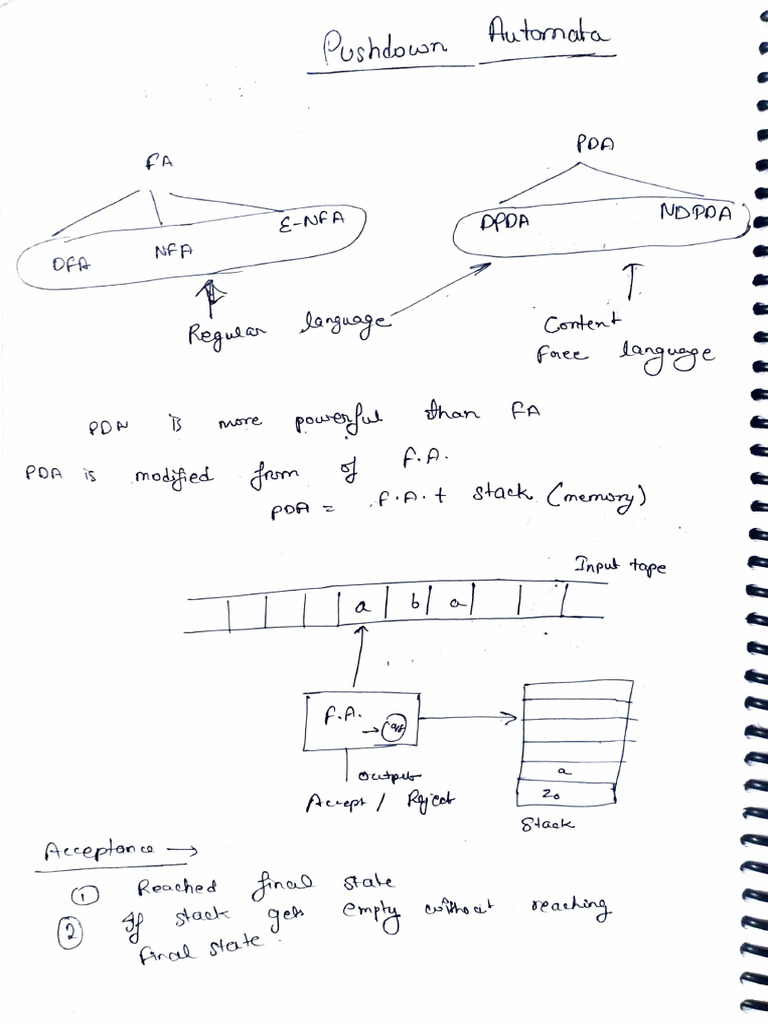 Pushdown Automata
FA
PDA
DFA NFA ε-NFA
DPDA NDPDA
Regular language
Content
Free language
PDN is more powerful than FA
PDA is modified from of F.A.
PDA = F.A. + stack (memory)
Input tape
a b a
F.A.
→
output
Accept / Reject
a
z₀
Stack
Acceptance →
① Reached final state
② If stack gets empty without reaching
final state.